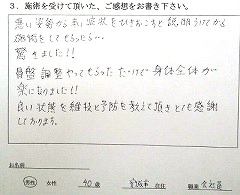 3. 施術を受けて頂いた、ご感想をお書き下さい。
悪い姿勢から悪い症状をひきおこすと説明うけてから
施術をしてもらったら…
驚きました!!
骨盤調整やってもらっただけで身体全体が
楽になりました!!
良い状態を維持と予防を教えて頂きとても感謝
しております。
お名前
男性 女性 40歳 宮城市 在住 職業 会社員